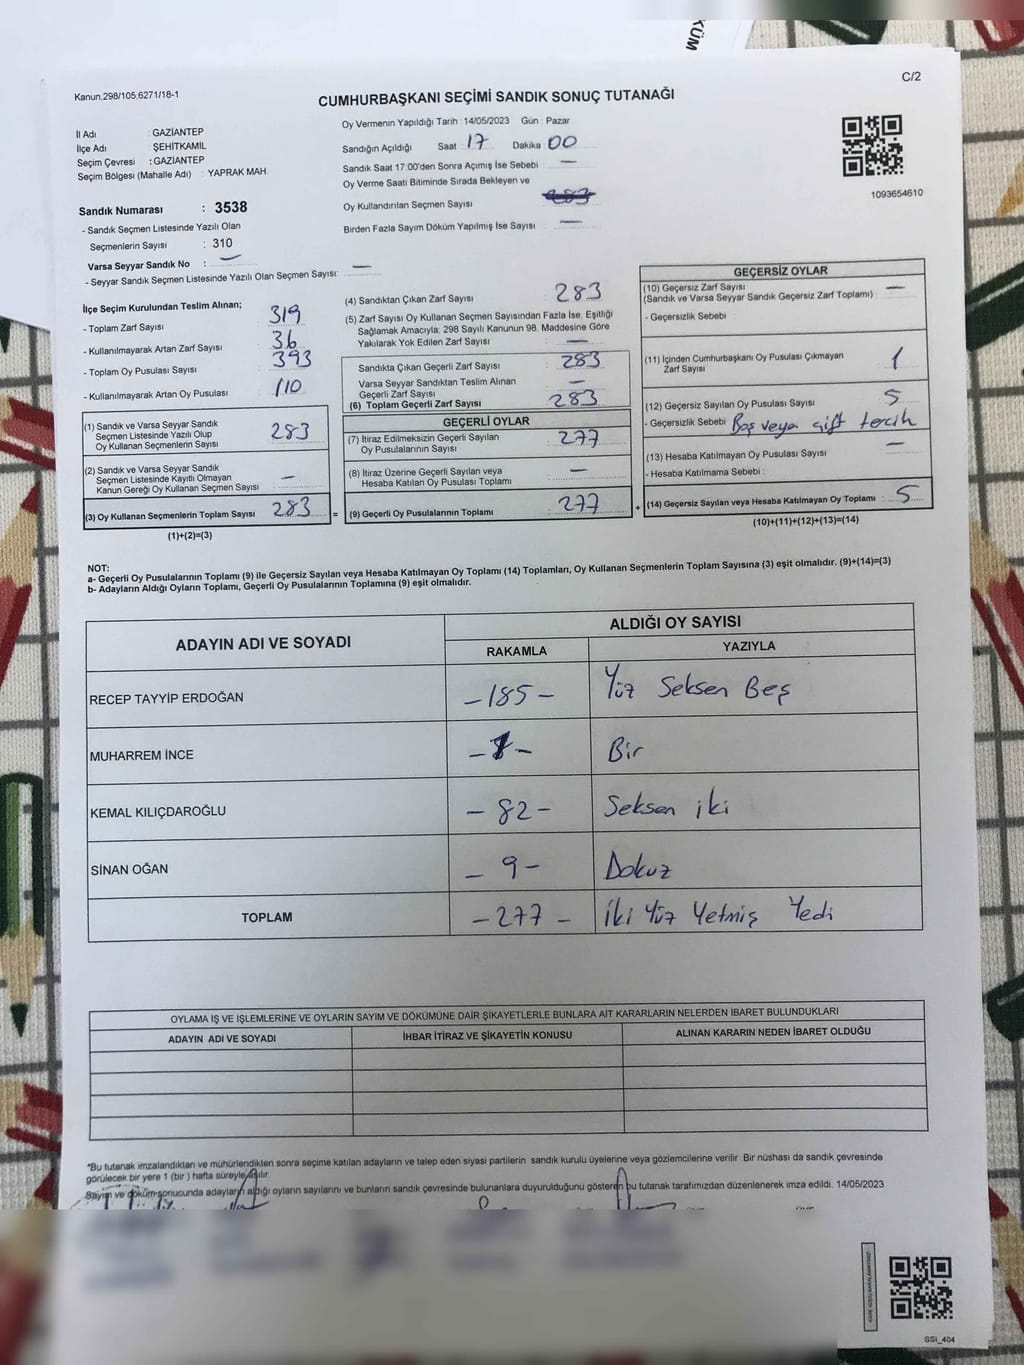 KÜM
C/2
Kanun;298/105;6271/18-1
CUMHURBAŞKANI SEÇİMİ SANDIK SONUÇ TUTANAĞI
İl Adı : GAZİANTEP
İlçe Adı : ŞEHİTKAMİL
Seçim Çevresi : GAZİANTEP
Seçim Bölgesi (Mahalle Adı) : YAPRAK MAH.
Sandık Numarası : 3538
- Sandık Seçmen Listesinde Yazılı Olan
Seçmenlerin Sayısı : 310
Varsa Seyyar Sandık No : —
- Seyyar Sandık Seçmen Listesinde Yazılı Olan Seçmen Sayısı: —
Oy Vermenin Yapıldığı Tarih : 14/05/2023 Gün : Pazar
Sandığın Açıldığı Saat : 17 Dakika : 00
Sandık Saat 17:00'den Sonra Açımış İse Sebebi : —
Oy Verme Saati Bitiminde Sırada Bekleyen ve
Oy Kullandırılan Seçmen Sayısı
Birden Fazla Sayım Döküm Yapılmış İse Sayısı : —
1093654610
İlçe Seçim Kurulundan Teslim Alınan;
- Toplam Zarf Sayısı : 319
- Kullanılmayarak Artan Zarf Sayısı : 36
- Toplam Oy Pusulası Sayısı : 393
- Kullanılmayarak Artan Oy Pusulası : 110
(1) Sandık ve Varsa Seyyar Sandık
Seçmen Listesinde Yazılı Olup
Oy Kullanan Seçmenlerin Sayısı : 283
(2) Sandık ve Varsa Seyyar Sandık
Seçmen Listesinde Kayıtlı Olmayan
Kanun Gereği Oy Kullanan Seçmen Sayısı : —
(3) Oy Kullanan Seçmenlerin Toplam Sayısı : 283
(1)+(2)=(3)
(4) Sandıktan Çıkan Zarf Sayısı : 283
(5) Zarf Sayısı Oy Kullanan Seçmen Sayısından Fazla İse, Eşitliği
Sağlamak Amacıyla; 298 Sayılı Kanunun 98. Maddesine Göre
Yakılarak Yok Edilen Zarf Sayısı : —
Sandıkta Çıkan Geçerli Zarf Sayısı : 283
Varsa Seyyar Sandıktan Teslim Alınan
Geçerli Zarf Sayısı : —
(6) Toplam Geçerli Zarf Sayısı : 283
GEÇERLİ OYLAR
(7) İtiraz Edilmeksizin Geçerli Sayılan
Oy Pusulalarının Sayısı : 277
(8) İtiraz Üzerine Geçerli Sayılan veya
Hesaba Katılan Oy Pusulası Toplamı : —
= (9) Geçerli Oy Pusulalarının Toplamı : 277 +
GEÇERSİZ OYLAR
(10) Geçersiz Zarf Sayısı
(Sandık ve Varsa Seyyar Sandık Geçersiz Zarf Toplamı) : —
- Geçersizlik Sebebi :
(11) İçinden Cumhurbaşkanı Oy Pusulası Çıkmayan
Zarf Sayısı : 1
(12) Geçersiz Sayılan Oy Pusulası Sayısı : 5
- Geçersizlik Sebebi : Boş veya çift tercih
(13) Hesaba Katılmayan Oy Pusulası Sayısı : —
- Hesaba Katılmama Sebebi :
(14) Geçersiz Sayılan veya Hesaba Katılmayan Oy Toplamı : 5
(10)+(11)+(12)+(13)=(14)
NOT:
a- Geçerli Oy Pusulalarının Toplamı (9) ile Geçersiz Sayılan veya Hesaba Katılmayan Oy Toplamı (14) Toplamları, Oy Kullanan Seçmenlerin Toplam Sayısına (3) eşit olmalıdır. (9)+(14)=(3)
b- Adayların Aldığı Oyların Toplamı, Geçerli Oy Pusulalarının Toplamına (9) eşit olmalıdır.
ADAYIN ADI VE SOYADI
ALDIĞI OY SAYISI
RAKAMLA YAZIYLA
RECEP TAYYİP ERDOĞAN -185- Yüz Seksen Beş
MUHARREM İNCE -1- Bir
KEMAL KILIÇDAROĞLU -82- Seksen iki
SİNAN OĞAN -9- Dokuz
TOPLAM -277- İki Yüz Yetmiş Yedi
OYLAMA İŞ VE İŞLEMLERİNE VE OYLARIN SAYIM VE DÖKÜMÜNE DAİR ŞİKAYETLERLE BUNLARA AİT KARARLARIN NELERDEN İBARET BULUNDUKLARI
ADAYIN ADI VE SOYADI İHBAR İTİRAZ VE ŞİKAYETİN KONUSU ALINAN KARARIN NEDEN İBARET OLDUĞU
*Bu tutanak imzalandıktan ve mühürlendikten sonra seçime katılan adayların ve talep eden siyasi partilerin sandık kurulu üyelerine veya gözlemcilerine verilir. Bir nüshası da sandık çevresinde
görülecek bir yere 1 (bir) hafta süreyle asılır.
Sayım ve döküm sonucunda adayların aldığı oyların sayılarını ve bunların sandık çevresinde bulunanlara duyurulduğunu gösteren bu tutanak tarafımızdan düzenlenerek imza edildi. 14/05/2023
SSİ_404